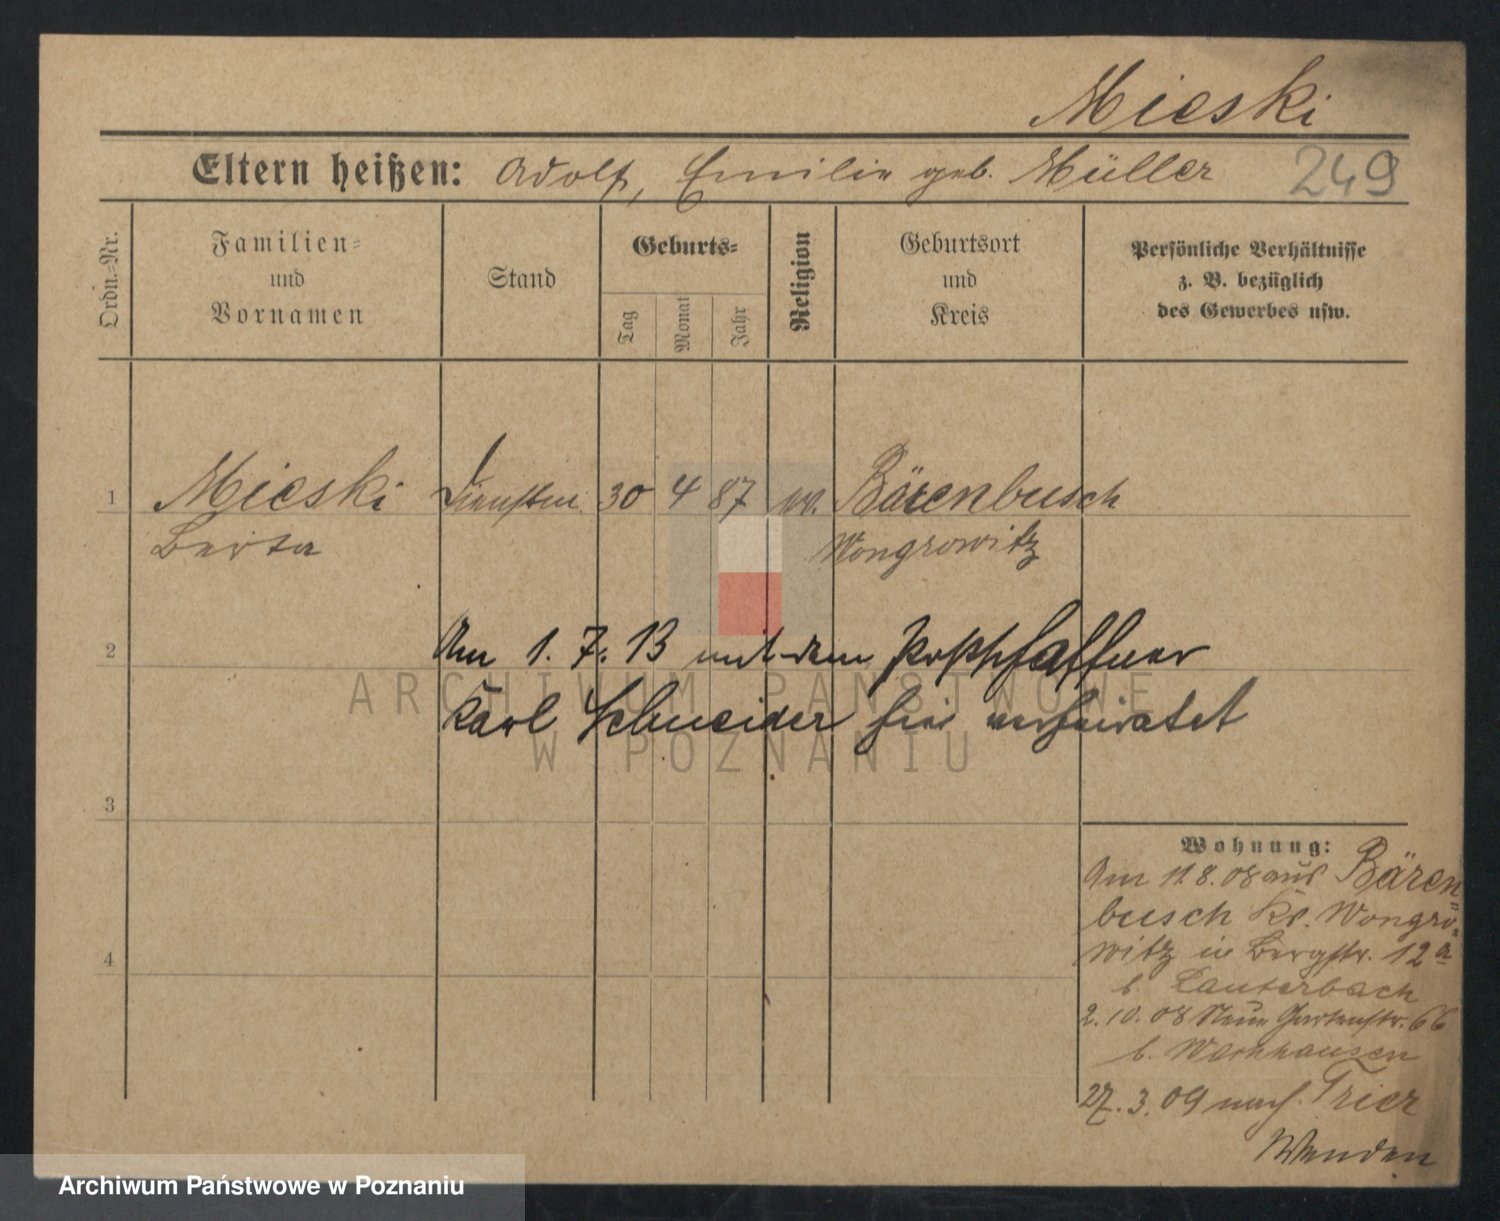 Mieski
Eltern heißen: Adolf, Emilie geb. Müller 249
Ordn.=Nr.
Familien=
und
Vornamen
Stand
Geburts=
Tag
Monat
Jahr
Religion
Geburtsort
und
Kreis
Persönliche Verhältnisse
z. B. bezüglich
des Gewerbes usw.
1 Mieski 30 4 87 Bärenbusch
Berta Wongrowitz
2 Am 1. 7. 13 mit dem Postschaffner
Karl Schneider hier verheiratet
3
4
Wohnung:
Am 11.8.08 aus Bären=
busch Kr. Wongro=
witz in Bergstr. 12a
b. Lauterbach
2.10.08 Neue Gartenstr. 66
b.
27.3.09 nach Trier
Wenden
ARCHIWUM PAŃSTWOWE
W POZNANIU
Archiwum Państwowe w Poznaniu